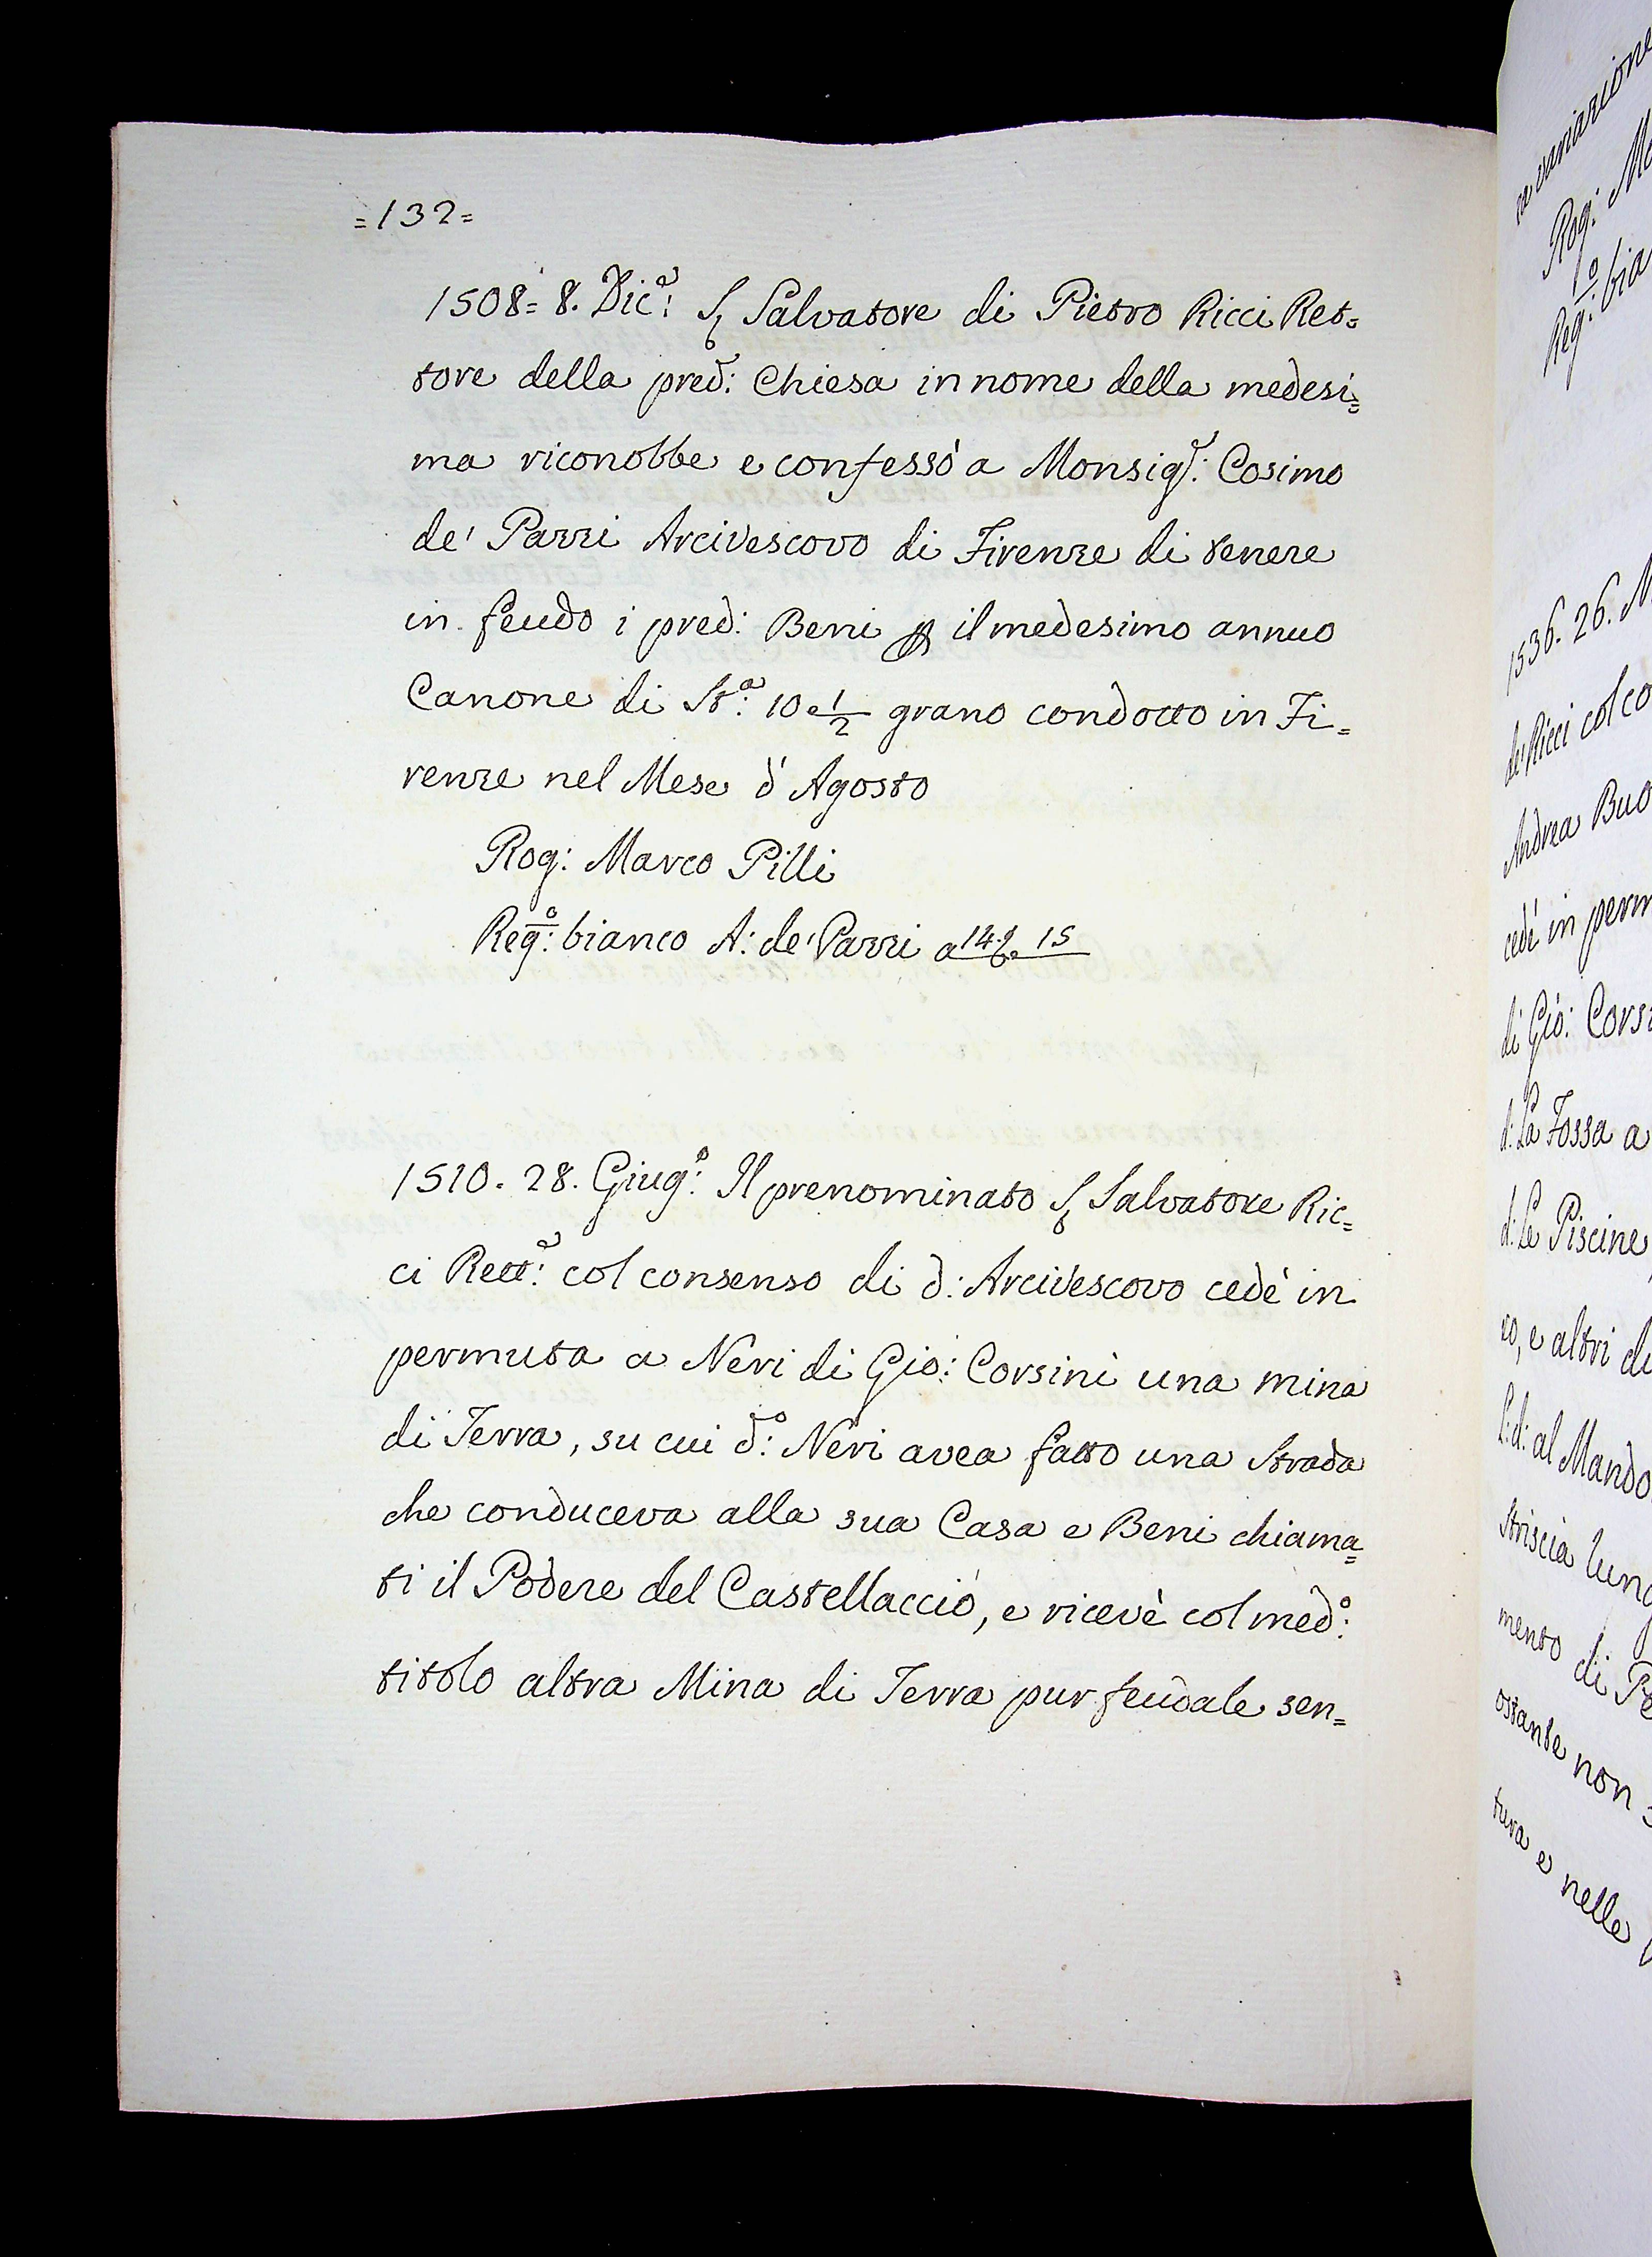 =132=
1508= 8. Dic.e: S. Salvatore di Pietro Ricci Ret=
tore della pred: Chiesa in nome della medesi=
ma riconobbe e confessò a Monsig.r: Cosimo
de' Pazzi Arcivescovo di Firenze di tenere
in feudo i pred: Beni p il medesimo annuo
Canone di St.a: 10 e 1/2 grano condotto in Fi=
renze nel Mese d'Agosto
Rog: Marco Pilli
Reg.o: bianco A: de' Pazzi a 15
1510. 28. Giug.o: Il prenominato S. Salvatore Ric=
ci Rett.e: col consenso di d: Arcivescovo cedè in
permuta a Neri di Gio: Corsini una mina
di Terra, su cui d.o: Neri avea fatto una Strada
che conduceva alla sua Casa e Beni chiama=
ti il Podere del Castellaccio, e ricevè col med.o:
titolo altra Mina di Terra pur feudale sen=
variazione
Rog:
Reg.o:
1536. 26.
de' Ricci col
Andrea
cedè in
di Gio:
d: La Fossa a
d: Le Piscine
ro, e altri
L: d: al
striscia
mento di
ostante non
tura e nelle